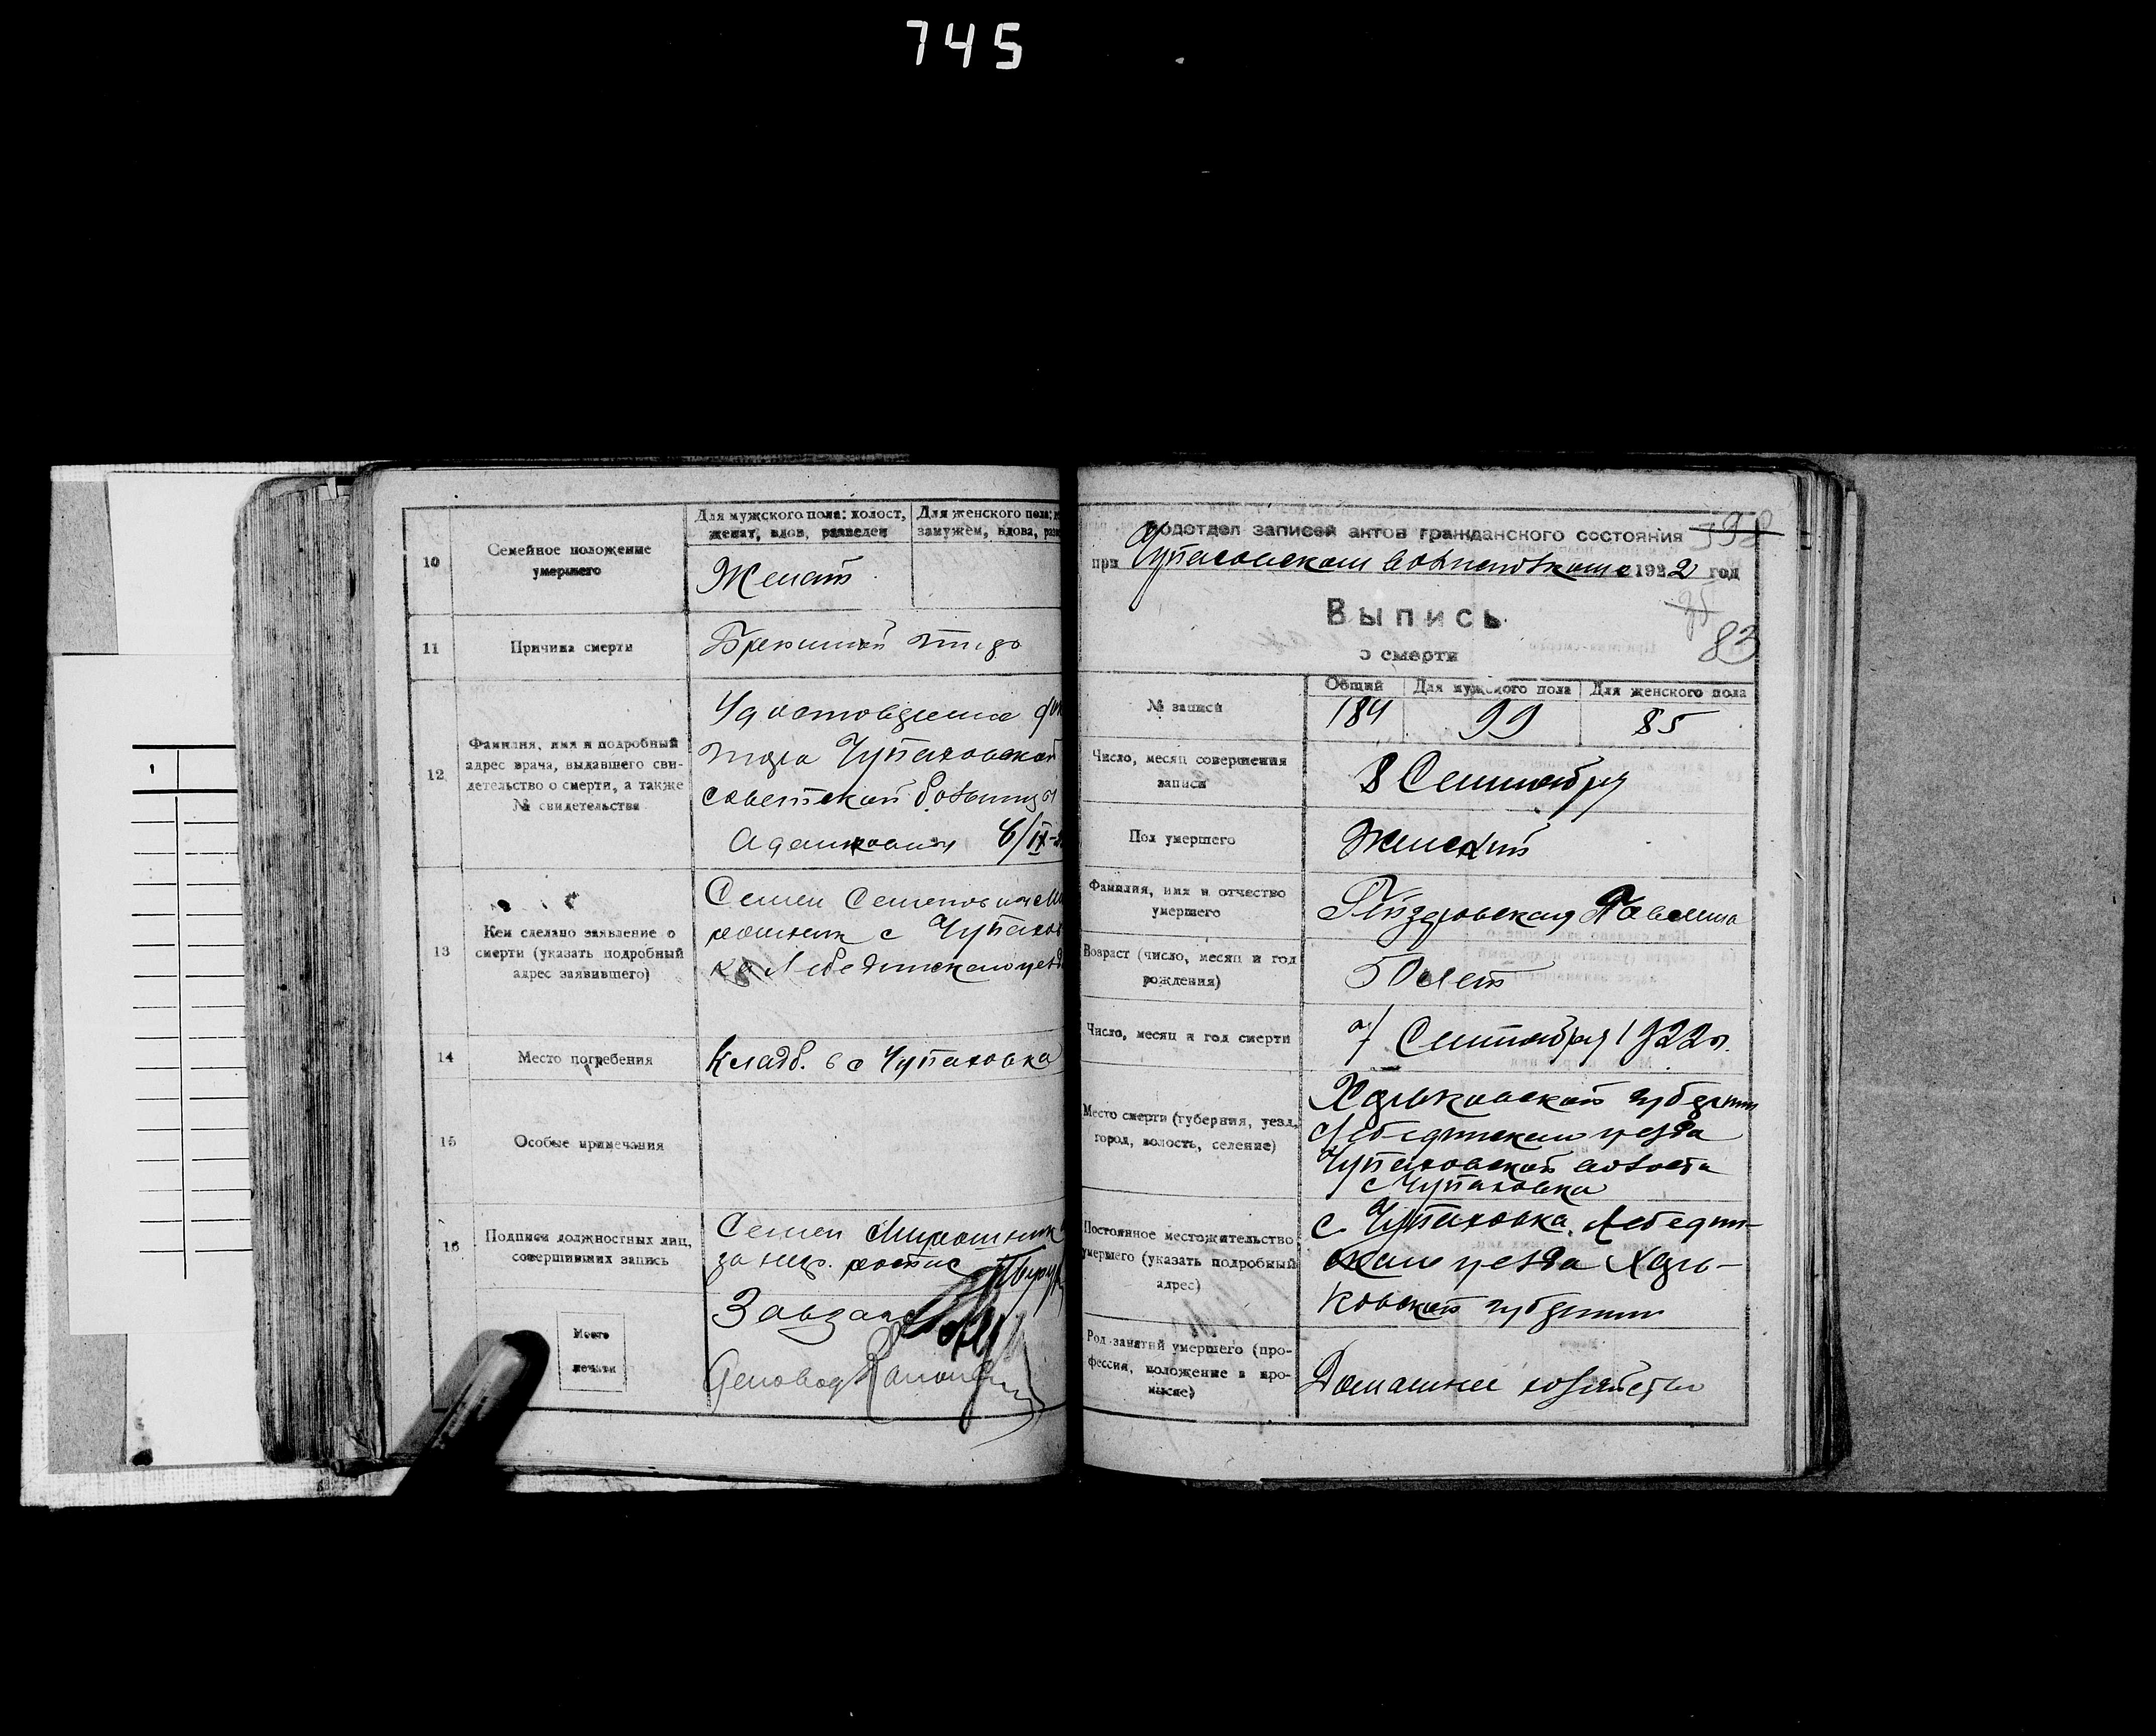 745
10
Семейное положение
умершего
Для мужского пола: холост,
женат, вдов, разведен
Для женского пола:
замужем, вдова,
Женат
11
Причина смерти
Брюшной тиф
12
Фамилия, имя и подробный
адрес врача, выдавшего сви-
детельство о смерти, а также
№ свидетельства
Чупаховской
советской больницы
6/IX
13
Кем сделано заявление о
смерти (указать подробный
адрес заявившего)
Семен Семенович Ми
рошник с Чупахов
ка Лебединского уезда
14
Место погребения
Кладб. в с Чупаховка
15
Особые примечания
16
Подписи должностных лиц,
совершивших запись
Семен Мирошник
за негр. роспис
Завзагс
Деловод
Место
печати
1
подотдел записей актов гражданского состояния
398
при Чупаховском волисполкоме 1922 год
Выпись
83
о смерти
№ записи
Общий
Для мужского пола
Для женского пола
184
99
85
Число, месяц совершения
записи
8 Сентября
Пол умершего
Женский
Фамилия, имя и отчество
умершего
Возраст (число, месяц и год
рождения)
50 лет
Число, месяц и год смерти
7 Сентября 1922 г.
Место смерти (губерния, уезд,
город, волость, селение)
Харьковской губернии
Лебединского уезда
Чупаховской волости
с Чупаховка
Постоянное местожительство
умершего (указать подробный
адрес)
с. Чупаховка Лебедин-
ского уезда Харь-
ковской губернии
Род занятий умершего (про-
фессия, положение в про-
мысле)
Домашнее хозяйство